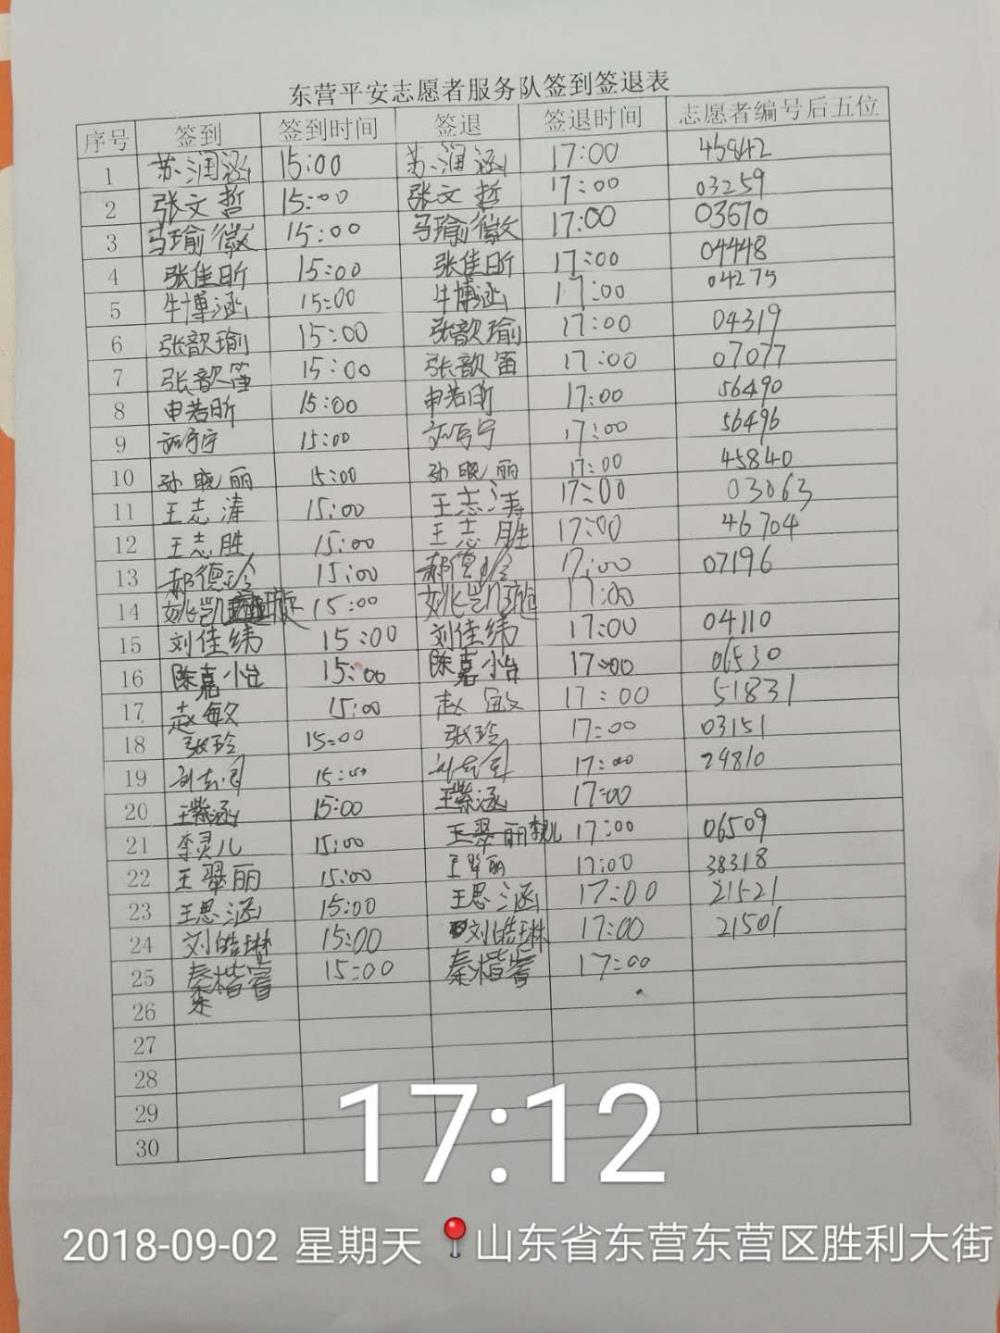 东营平安志愿者服务队签到签退表
序号 签到 签到时间 签退 签退时间 志愿者编号后五位
1 苏润涵 15:00 苏润涵 17:00 45842
2 张文哲 15:00 张文哲 17:00 03259
3 马瑜徽 15:00 马瑜徽 17:00 03670
4 张佳昕 15:00 张佳昕 17:00 04448
5 牛博涵 15:00 牛博涵 17:00 04275
6 张歆瑜 15:00 张歆瑜 17:00 04319
7 张歆笛 15:00 张歆笛 17:00 07077
8 申若昕 15:00 申若昕 17:00 56490
9 15:00 17:00 56496
10 孙晓丽 15:00 孙晓丽 17:00 45840
11 王志涛 15:00 王志涛 17:00 03063
12 王志胜 15:00 王志胜 17:00 46704
13 郝德珍 15:00 郝德珍 17:00 07196
14 姚凯璇 15:00 姚凯璇 17:00
15 刘佳纬 15:00 刘佳纬 17:00 04110
16 陈嘉怡 15:00 陈嘉怡 17:00 06530
17 赵敏 15:00 赵敏 17:00 51831
18 张玲 15:00 张玲 17:00 03151
19 15:00 17:00 24810
20 王紫涵 15:00 王紫涵 17:00
21 李灵儿 15:00 王翠丽 17:00 06509
22 王翠丽 15:00 王翠丽 17:00 38318
23 王思涵 15:00 王思涵 17:00 21521
24 刘皓琳 15:00 刘皓琳 17:00 21501
25 秦楷睿 15:00 秦楷睿 17:00
26
27
28
29
30
17:12
2018-09-02 星期天 山东省东营东营区胜利大街